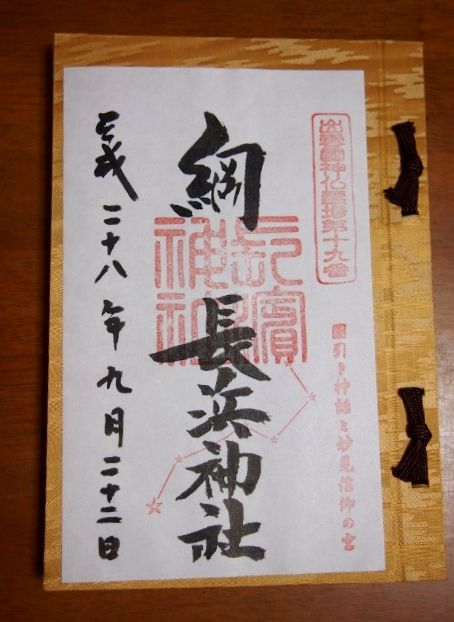 出雲國神仏霊場第十九番
國引き神話と妙見信仰の宮
綱
長浜神社
長濱神社
平成二十八年九月二十二日